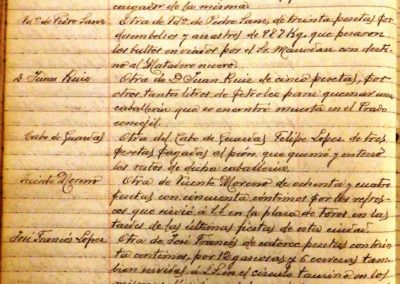 cargador de la misma.
Vda. de Pedro Sanz Otra de Vda. de Pedro Sanz, de treinta pesetas por
desembolsos y arrastres de 987 Kg. que pesaron
los bultos enviados por el Sr. con desti
no al Matadero nuevo.
D. Juan Ruiz Otra de D. Juan Ruiz de cinco pesetas, por
otros tantos litros de petroleo para quemar una
caballeria que se encontró muerta en el Prado
concejil.
Cabo de Guardas Otra del Cabo de Guardas Felipe Lopez, de tres
pesetas pagadas al peón que quemó y enterró
los restos de dicha caballeria.
Vicente Moreno Otra de Vicente Moreno de ochenta y cuatro
pesetas con cincuenta centimos por los refres-
cos que sirvió á S.S. en la plaza de toros en las
tardes de las últimas fiestas de esta ciudad.
José Francés López Otra de José Francés de catorce pesetas con trein
ta centimos, por 12 gaseosas y 6 cervezas tam-
bien servidas á S.S. en el circulo taurino en los